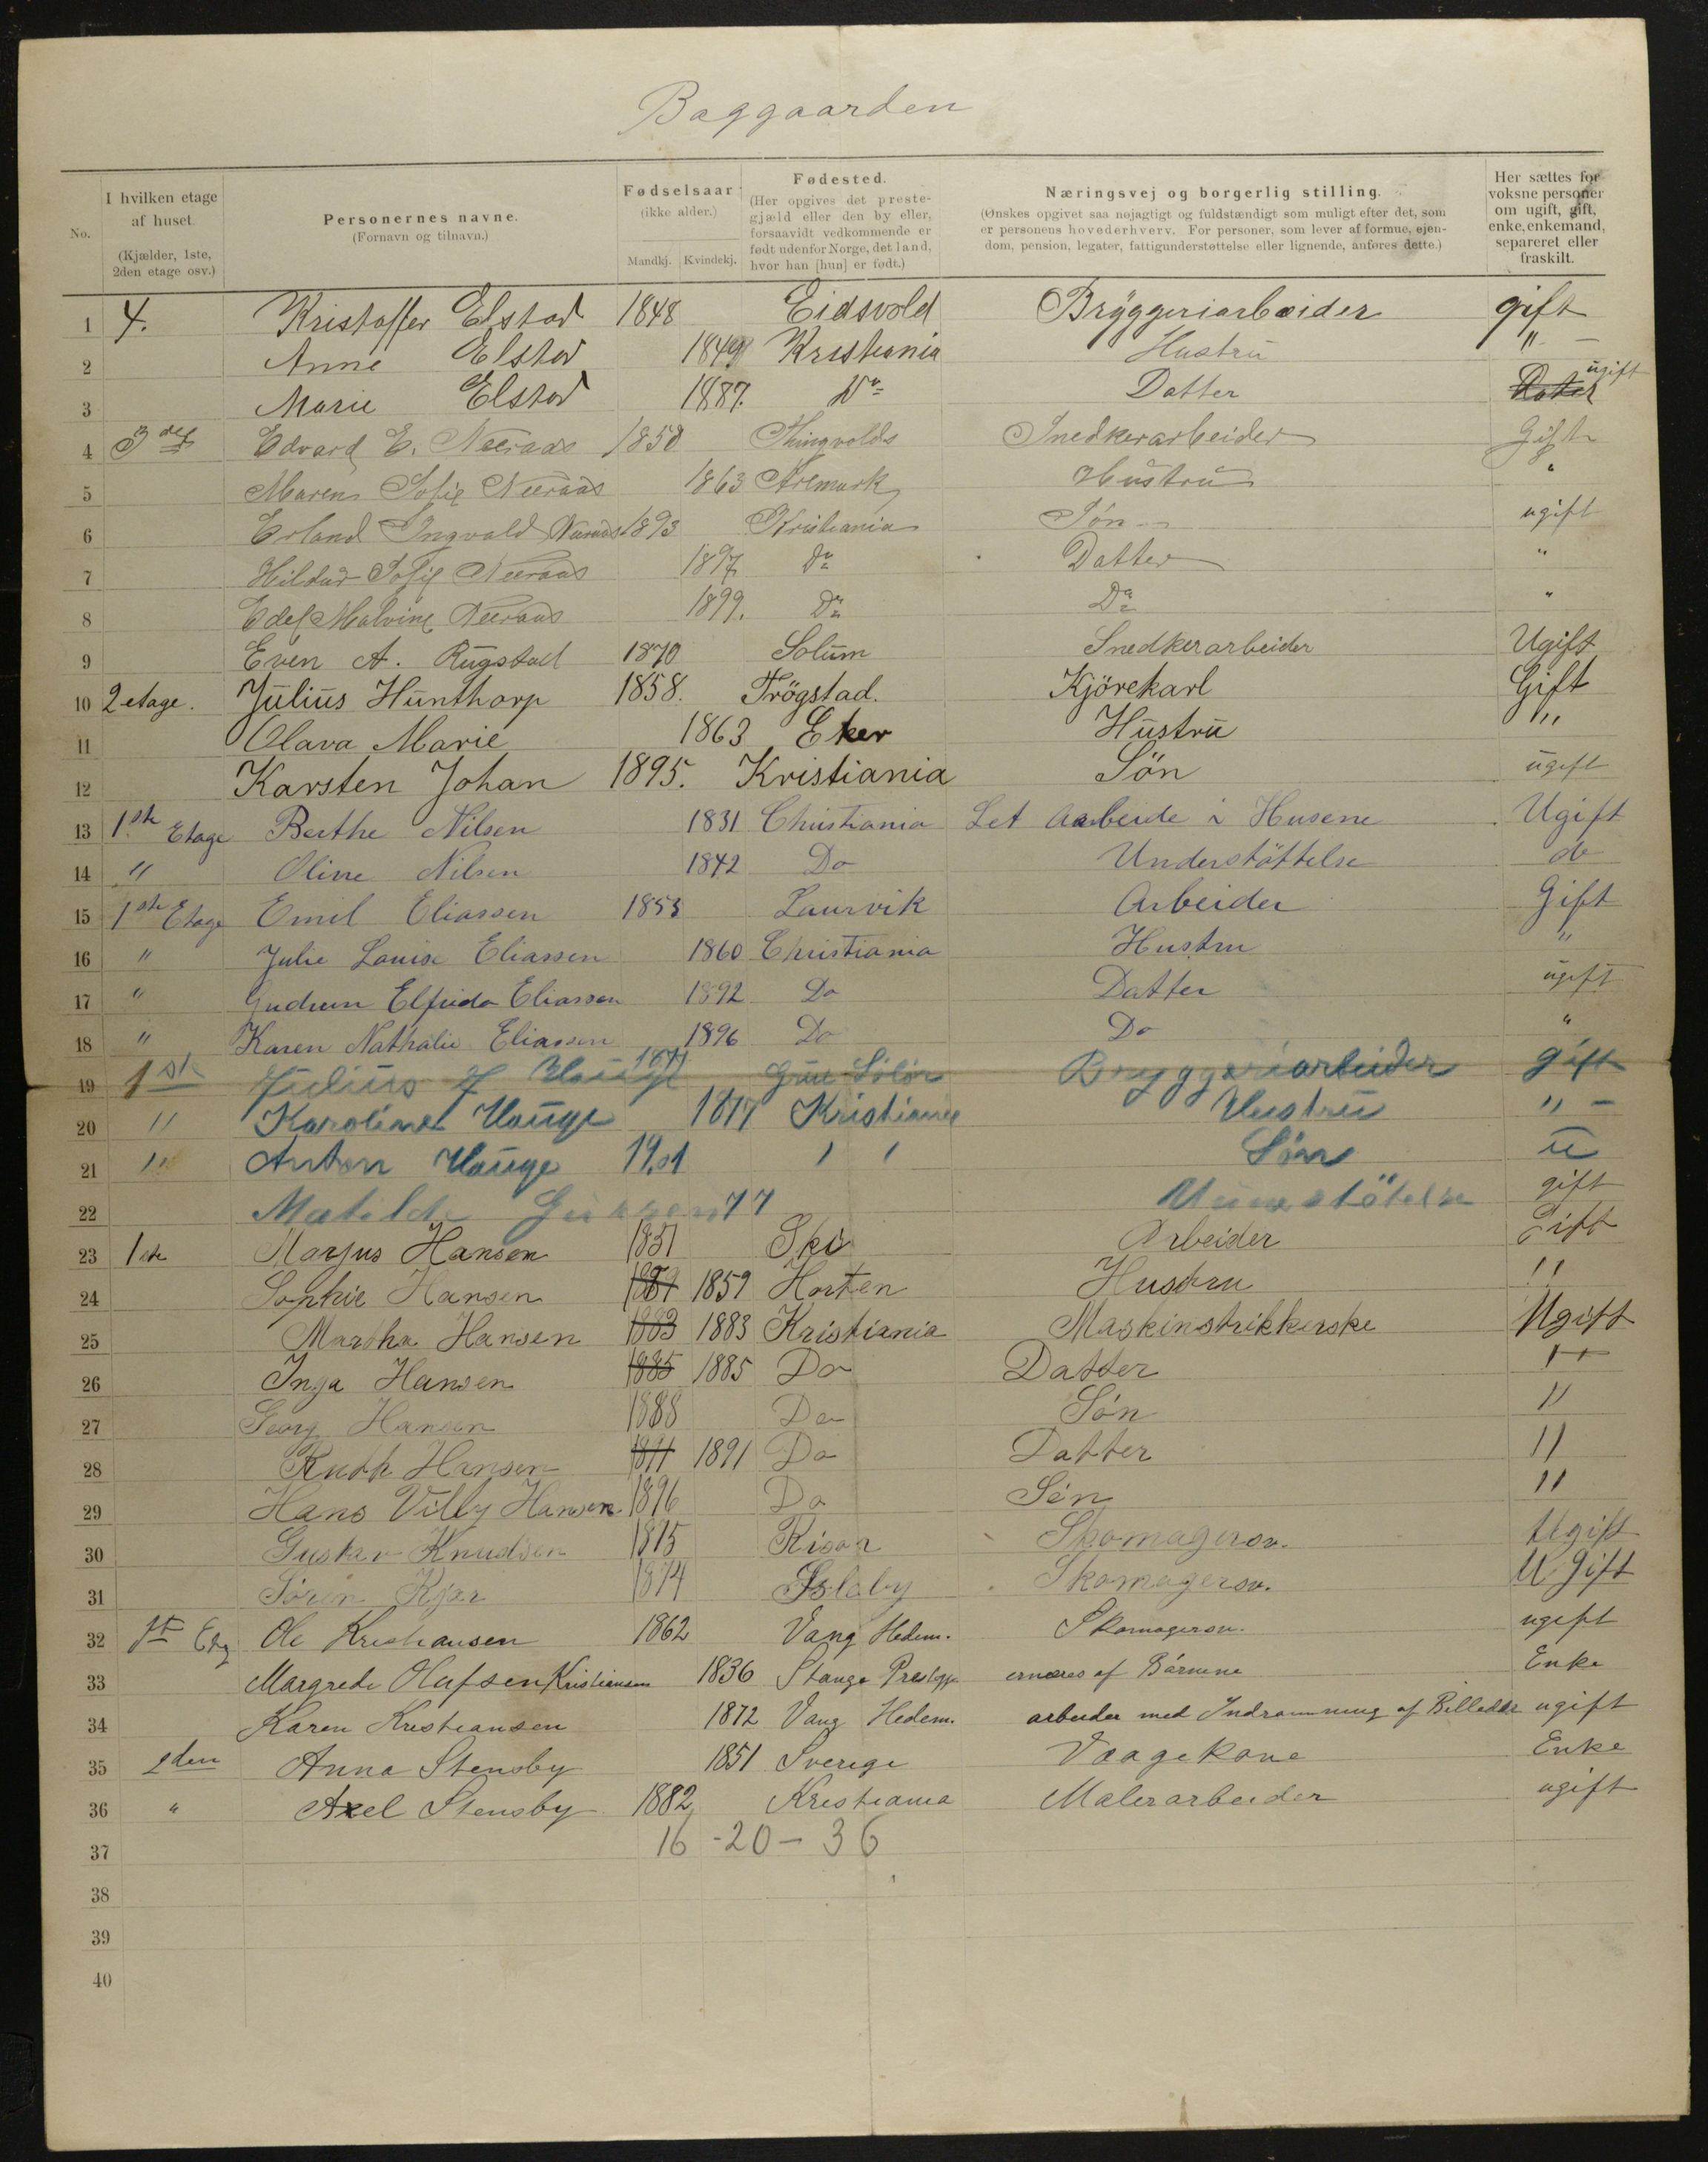 Baggaarden
No. I hvilken etage af huset. (Kjælder, 1ste, 2den etage osv.) Personernes navne. (Fornavn og tilnavn.) Fødselsaar (ikke alder.) Mandkj. Kvindekj. Fødested. (Her opgives det prestegjæld eller den by eller, forsaavidt vedkommende er født udenfor Norge, det land, hvor han [hun] er født.) Næringsvej og borgerlig stilling. (Ønskes opgivet saa nøjagtigt og fuldstændigt som muligt efter det, som er personens hovederhverv. For personer, som lever af formue, ejendom, pension, legater, fattigunderstøttelse eller lignende, anføres dette.) Her sættes for voksne personer om ugift, gift, enke, enkemand, separeret eller fraskilt.
1 4. Kristoffer Elstad 1848 Eidsvold Brÿggeriarbeider gift
2 Anne Elstad 1849 Kristiania Hustrü " –
3 Marie Elstad 1887. Do Datter ugift
4 3die Edvard E. Neeraas 1850 Thingvolds Snedkerarbeider Gift
5 Maren Sofie Neeraas 1863 Aremark Hustrü "
6 Erland Ingvald Neeraas 1893 Kristiania Søn ugift
7 Hildur Sofie Neeraas 1897 Do Datter "
8 Edel Malvine Neeraas 1899. Do Do "
9 Even A. Rügstad 1870 Solüm Snedkerarbeider Ugift
10 2 etage. Jülius Hünthorp 1858. Trögstad. Kjörekarl Gift
11 Olava Marie 1863 Eker Hüstrü "
12 Karsten Johan 1895. Kristiania Sön ügift
13 1ste Etage Berthe Nilsen 1831 Christiania Let Aarbeide i Husene Ugift
14 " Oline Nilsen 1842 Do Understöttelse do
15 1ste Etage Emil Eliassen 1853 Laurvik Arbeider Gift
16 " Julie Louise Eliassen 1860 Christiania Hustru "
17 " Gudrun Elfrida Eliassen 1892 Do Datter ugift
18 " Karen Nathalie Eliassen 1896 Do Do "
19 1ste Jülius J Haüge 1871 Grue Solør Bryggeriarbeider gift
20 " Karoline Haüge 1877 Kristiania Hustrü " –
21 " Anton Haüge 1901 " " Sön ü
22 Matilde 77 gift
23 1ste Marjus Hansen 1851 Ski Arbeider Gift
24 Sophie Hansen 1859 Horten Hustru "
25 Martha Hansen 1883 1883 Kristiania Maskinstrikkerske Ugift
26 Inga Hansen 1885 1885 Do Datter "
27 Georg Hansen 1888 Do Søn "
28 Ruth Hansen 1891 Do Datter "
29 Hans Villy Hansen 1896 Do Søn "
30 Gustav Knudsen 1875 Risør Skomagersv. Ugift
31 Sören Kjær 1874 Skomagersv. UGift
32 1ste Etg Ole Kristiansen 1862 Vang Hedem. Skomagersv. ugift
33 Margrede Olafsen Kristiansen 1836 Stange Prestegj. ernæres af Børnene Enke
34 Karen Kristiansen 1872 Vang Hedem. arbeider med Indramning af Billeder ugift
35 2den Anna Stensby 1851 Sverige Vaagekone Enke
36 " Axel Stensby 1882 Kristiania Malerarbeider ugift
37 16 - 20 - 36
38
39
40